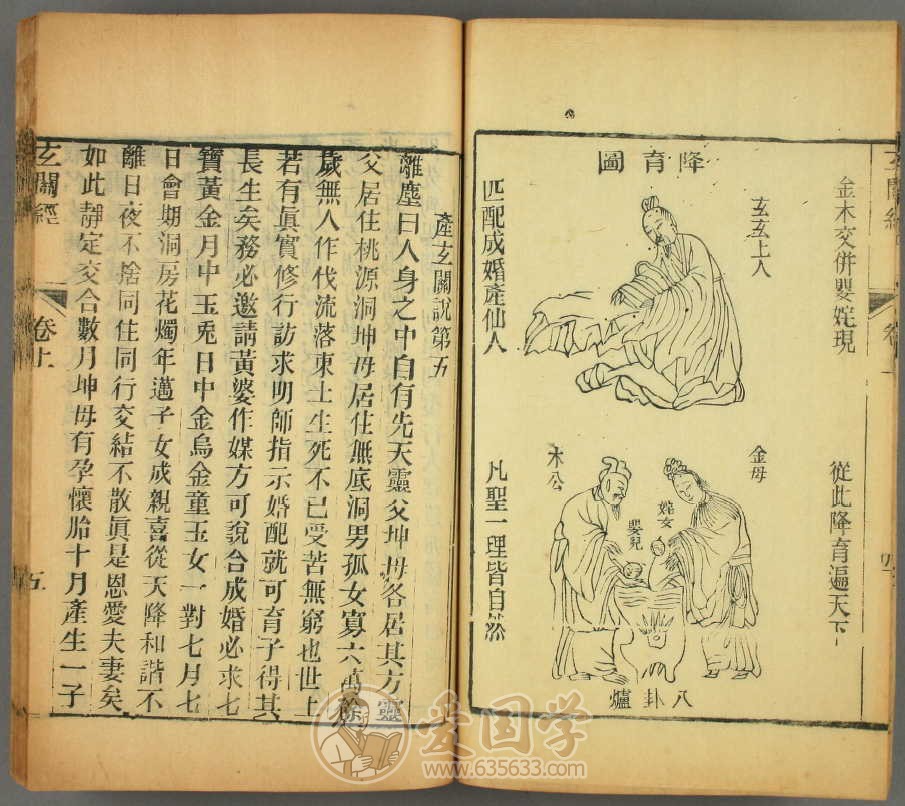 金木交併嬰姹現
從此降育遍天下
降育圖
玄玄上人
金母
姹女
嬰兒
木公
八卦爐
匹配成婚產仙人
凡聖一理皆自然
產玄關說第五
離塵曰人身之中自有先天靈父坤母各居其方靈
父居住桃源洞坤母居住無底洞男孤女寡六萬餘
歲無人作伐流落東土生死不已受苦無窮也世上
若有眞實修行訪求明師指示婚配就可育子得其
長生矣務必邀請黃婆作媒方可說合成婚必求七
寶黃金月中玉兎日中金烏金童玉女一對七月七
日會期洞房花燭年邁子女成親喜從天降和諧不
離日夜不捨同住同行交結不散眞是恩愛夫妻矣
如此靜定交合數月坤母有孕懷胎十月產生一子
玄關經
卷上
五
爱国学
www.635633.com